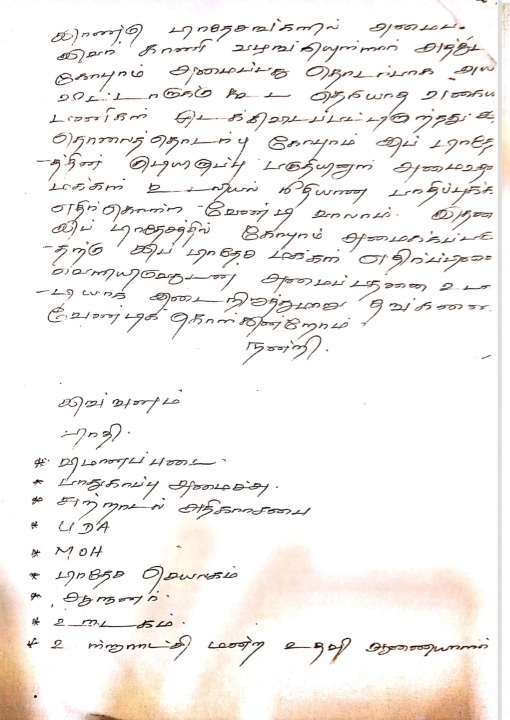 இரண்டு பிரதேசங்களில் அமைய
இவர் காணி வழங்கியுள்ளார் அத்துட
கோபுரம் அமைப்பது தொடர்பாக அய
தெரியாத வகைய
தொலைத்தொடர்பு கோபுரம் இப் பிரதே
-த்தின் குடியிருப்பு பகுதியினுள் அமைவத
மக்கள் உடலியல் ரீதியான பாதிப்புக்க
எதிர்கொள்ள வேண்டி வரலாம். இதன
இப் பிரதேசத்தில் கோபுரம் அமைக்கப்படு
-தற்கு இப் பிரதேச மக்கள் எதிர்ப்பினை
வெளியிடுவதுடன் அமைப்பதனை உட
-டியாக இடைநிறுத்துமாறு தங்களை
வேண்டிக் கொள்கின்றோம்
நன்றி.
இவ்வணம்
பிரதி.
* விமானப் படை.
* பாதுகாப்பு அமைச்சு.
* சுற்றாடல் அதிகாரசபை
* UDA
* MOH
* பிரதேச செயலகம்
* ஆளுனர்.
* ஊடகம்.
* உள்ளூராட்சி மன்ற உதவி ஆணையாளர்